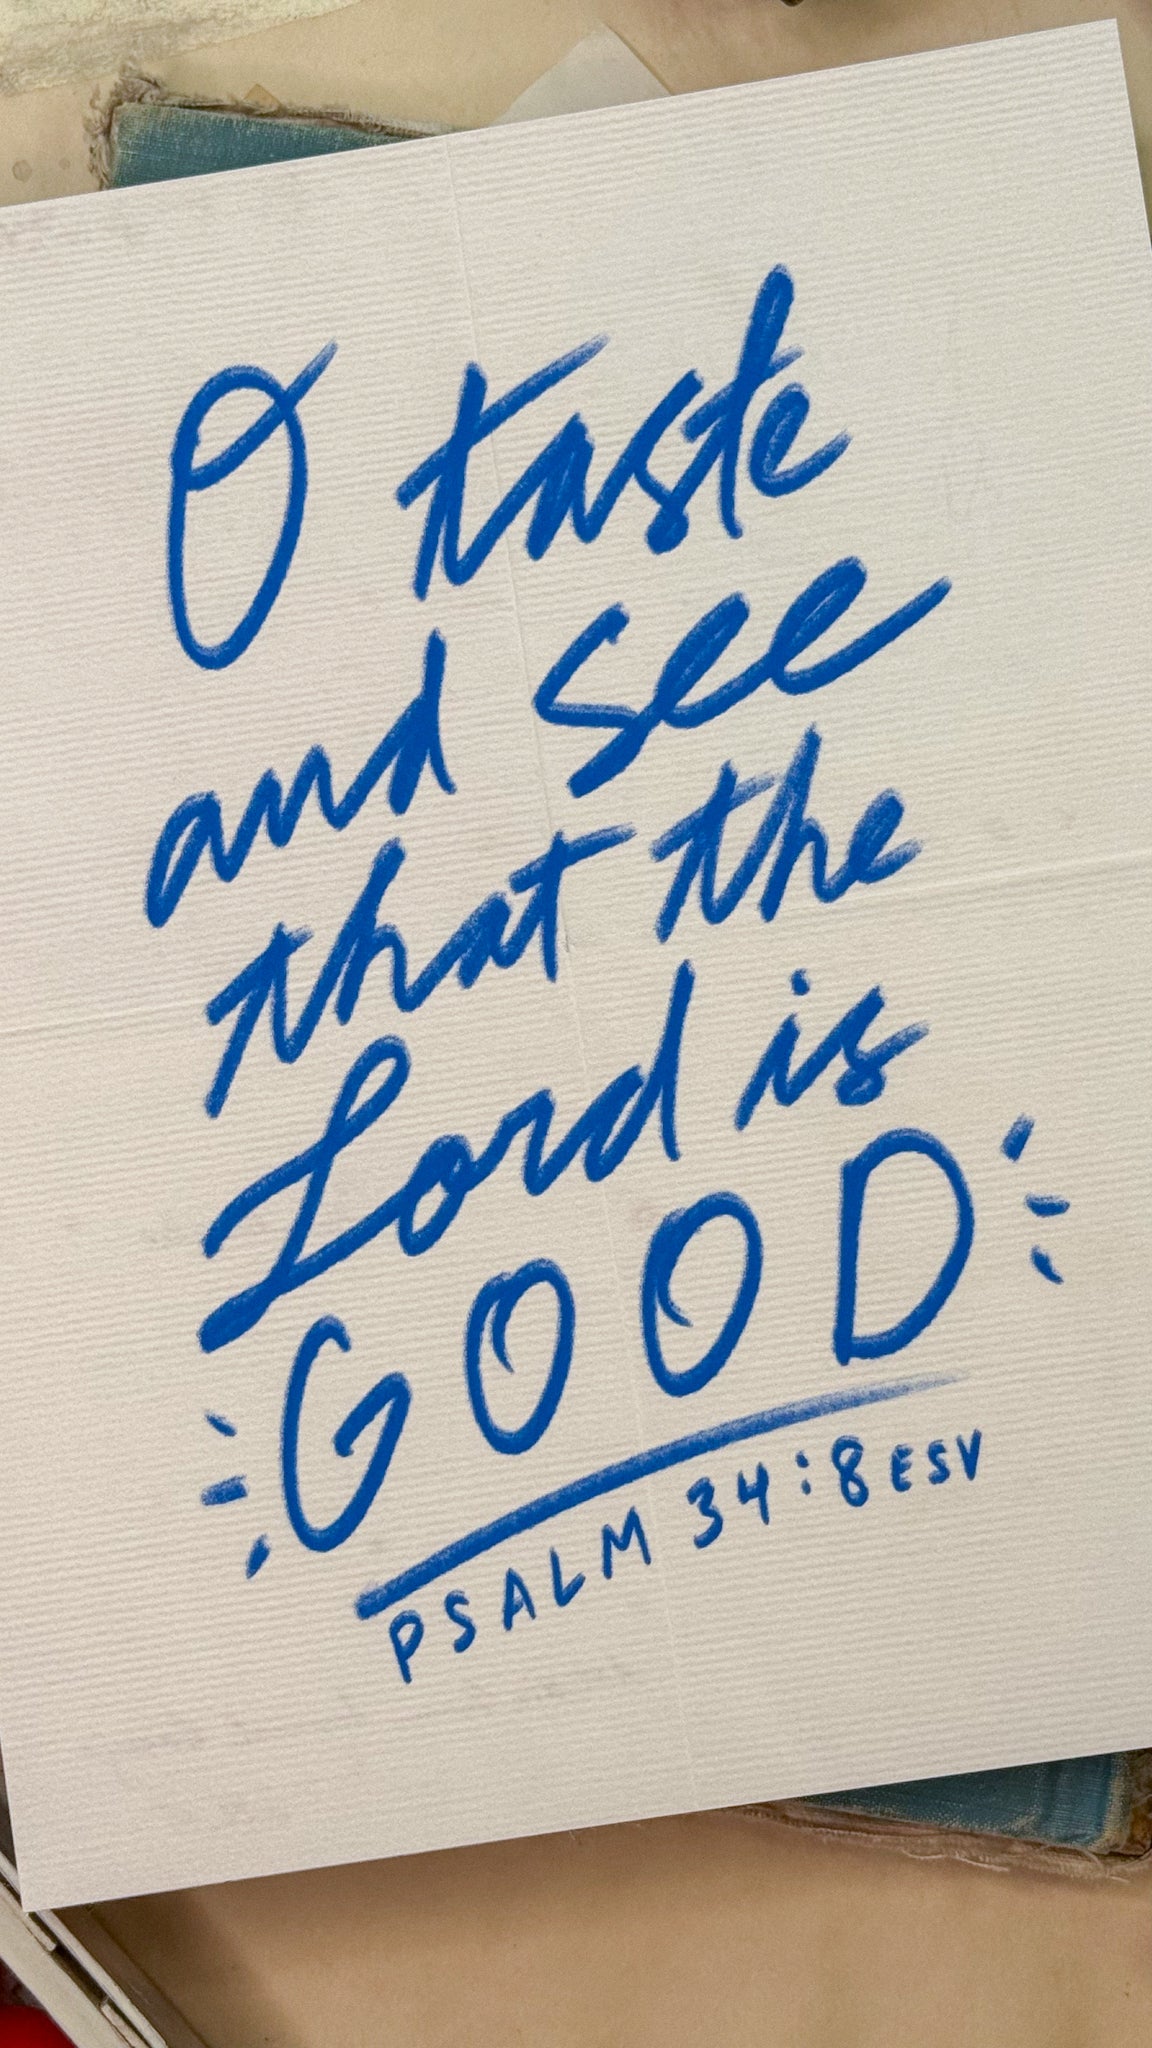 O taste
and see
that the
Lord is
GOOD
PSALM 34:8 ESV